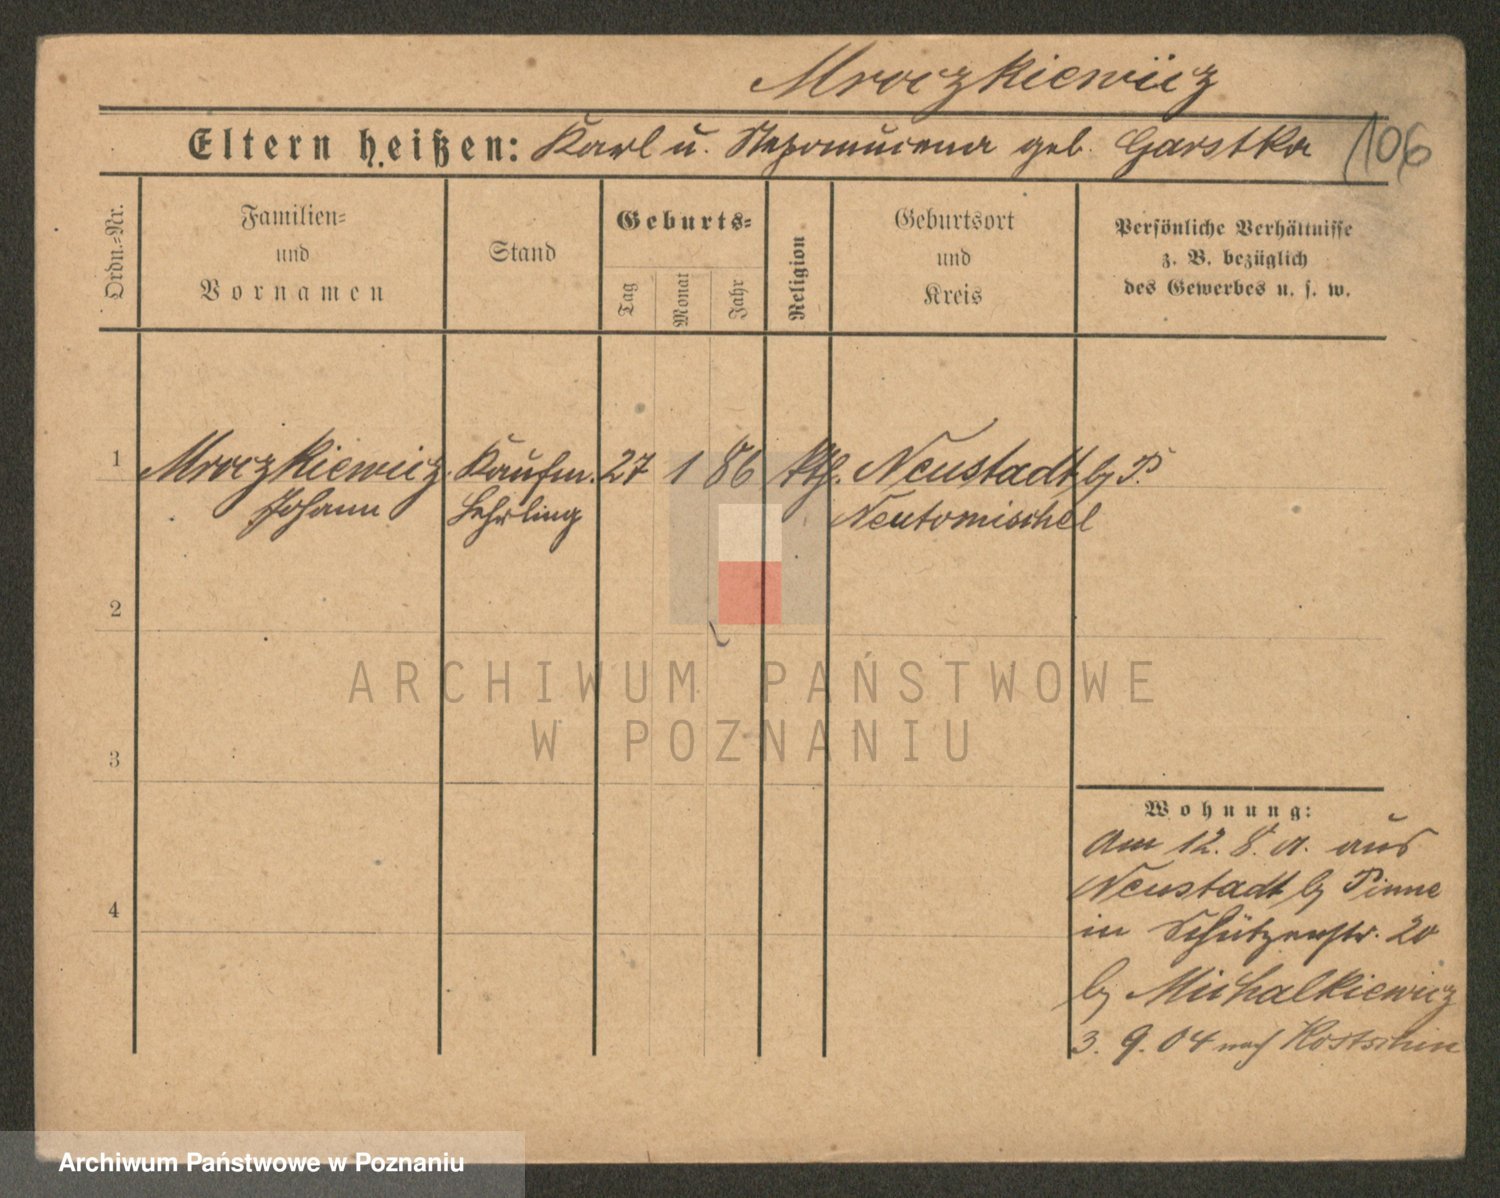 Mroczkiewicz
Eltern heißen: Karl u. Nepomucena geb. Garstka
106
Ordn.=Nr.
Familien=
und
Vornamen
Stand
Geburts=
Tag
Monat
Jahr
Religion
Geburtsort
und
Kreis
Persönliche Verhältnisse
z. B. bezüglich
des Gewerbes u. s. w.
1 Mroczkiewicz Kaufm. 27 1 86 kth. Neustadt b/ P.
Johann Lehrling Neutomischel
2
3
4
Wohnung:
Am 12. 8. a. aus
Neustadt b/ Pinne
in Schützenstr. 20
b/ Michalkiewicz
3. 9. 04 nach Kostschin
ARCHIWUM PAŃSTWOWE
W POZNANIU
Archiwum Państwowe w Poznaniu